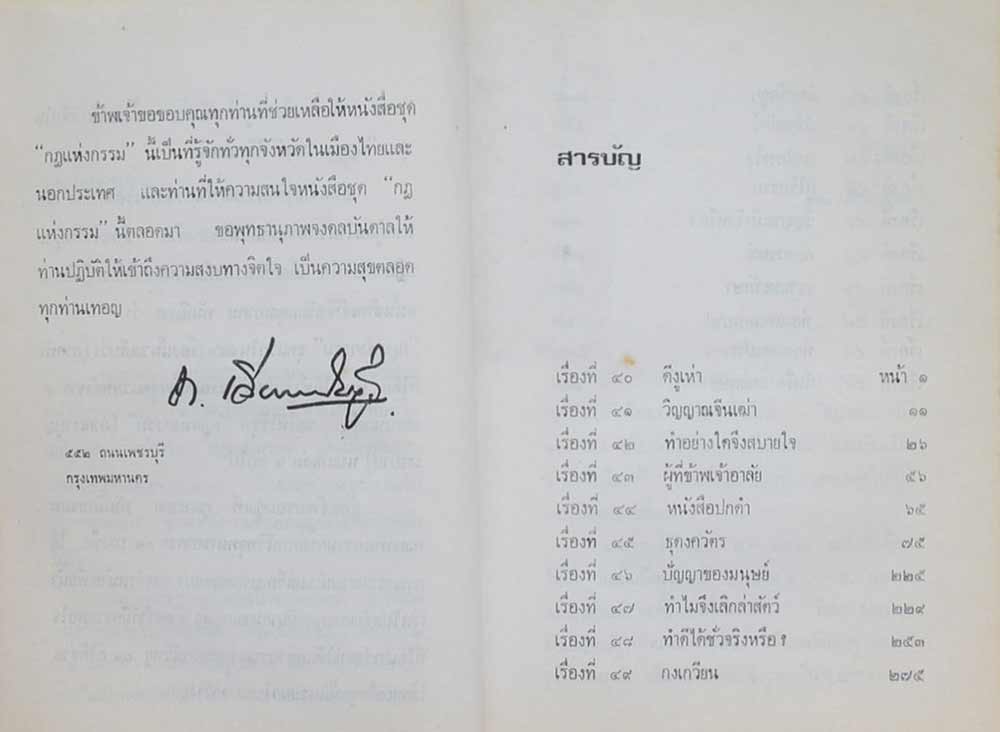 ข้าพเจ้าขอขอบคุณทุกท่านที่ช่วยเหลือให้หนังสือชุด
“กฎแห่งกรรม” นี้เป็นที่รู้จักทั่วทุกจังหวัดในเมืองไทยและ
นอกประเทศ และท่านที่ให้ความสนใจหนังสือชุด “กฎ
แห่งกรรม” นี้ตลอดมา ขอพุทธานุภาพจงดลบันดาลให้
ท่านปฏิบัติให้เข้าถึงความสงบทางจิตใจ เป็นความสุขตลอด
ทุกท่านเทอญ
๕๕๒ ถนนเพชรบุรี
กรุงเทพมหานคร
สารบัญ
เรื่องที่ ๔๐ ตีงูเห่า หน้า ๑
เรื่องที่ ๔๑ วิญญาณจีนเฒ่า ๑๑
เรื่องที่ ๔๒ ทำอย่างใดจึงสบายใจ ๒๖
เรื่องที่ ๔๓ ผู้ที่ข้าพเจ้าอาลัย ๕๖
เรื่องที่ ๔๔ หนังสือปกดำ ๖๕
เรื่องที่ ๔๕ ธุดงควัตร ๗๕
เรื่องที่ ๔๖ ปัญญาของมนุษย์ ๒๒๕
เรื่องที่ ๔๗ ทำไมจึงเลิกล่าสัตว์ ๒๒๙
เรื่องที่ ๔๘ ทำดีได้ชั่วจริงหรือ ? ๒๕๓
เรื่องที่ ๔๙ กงเกวียน ๒๗๕